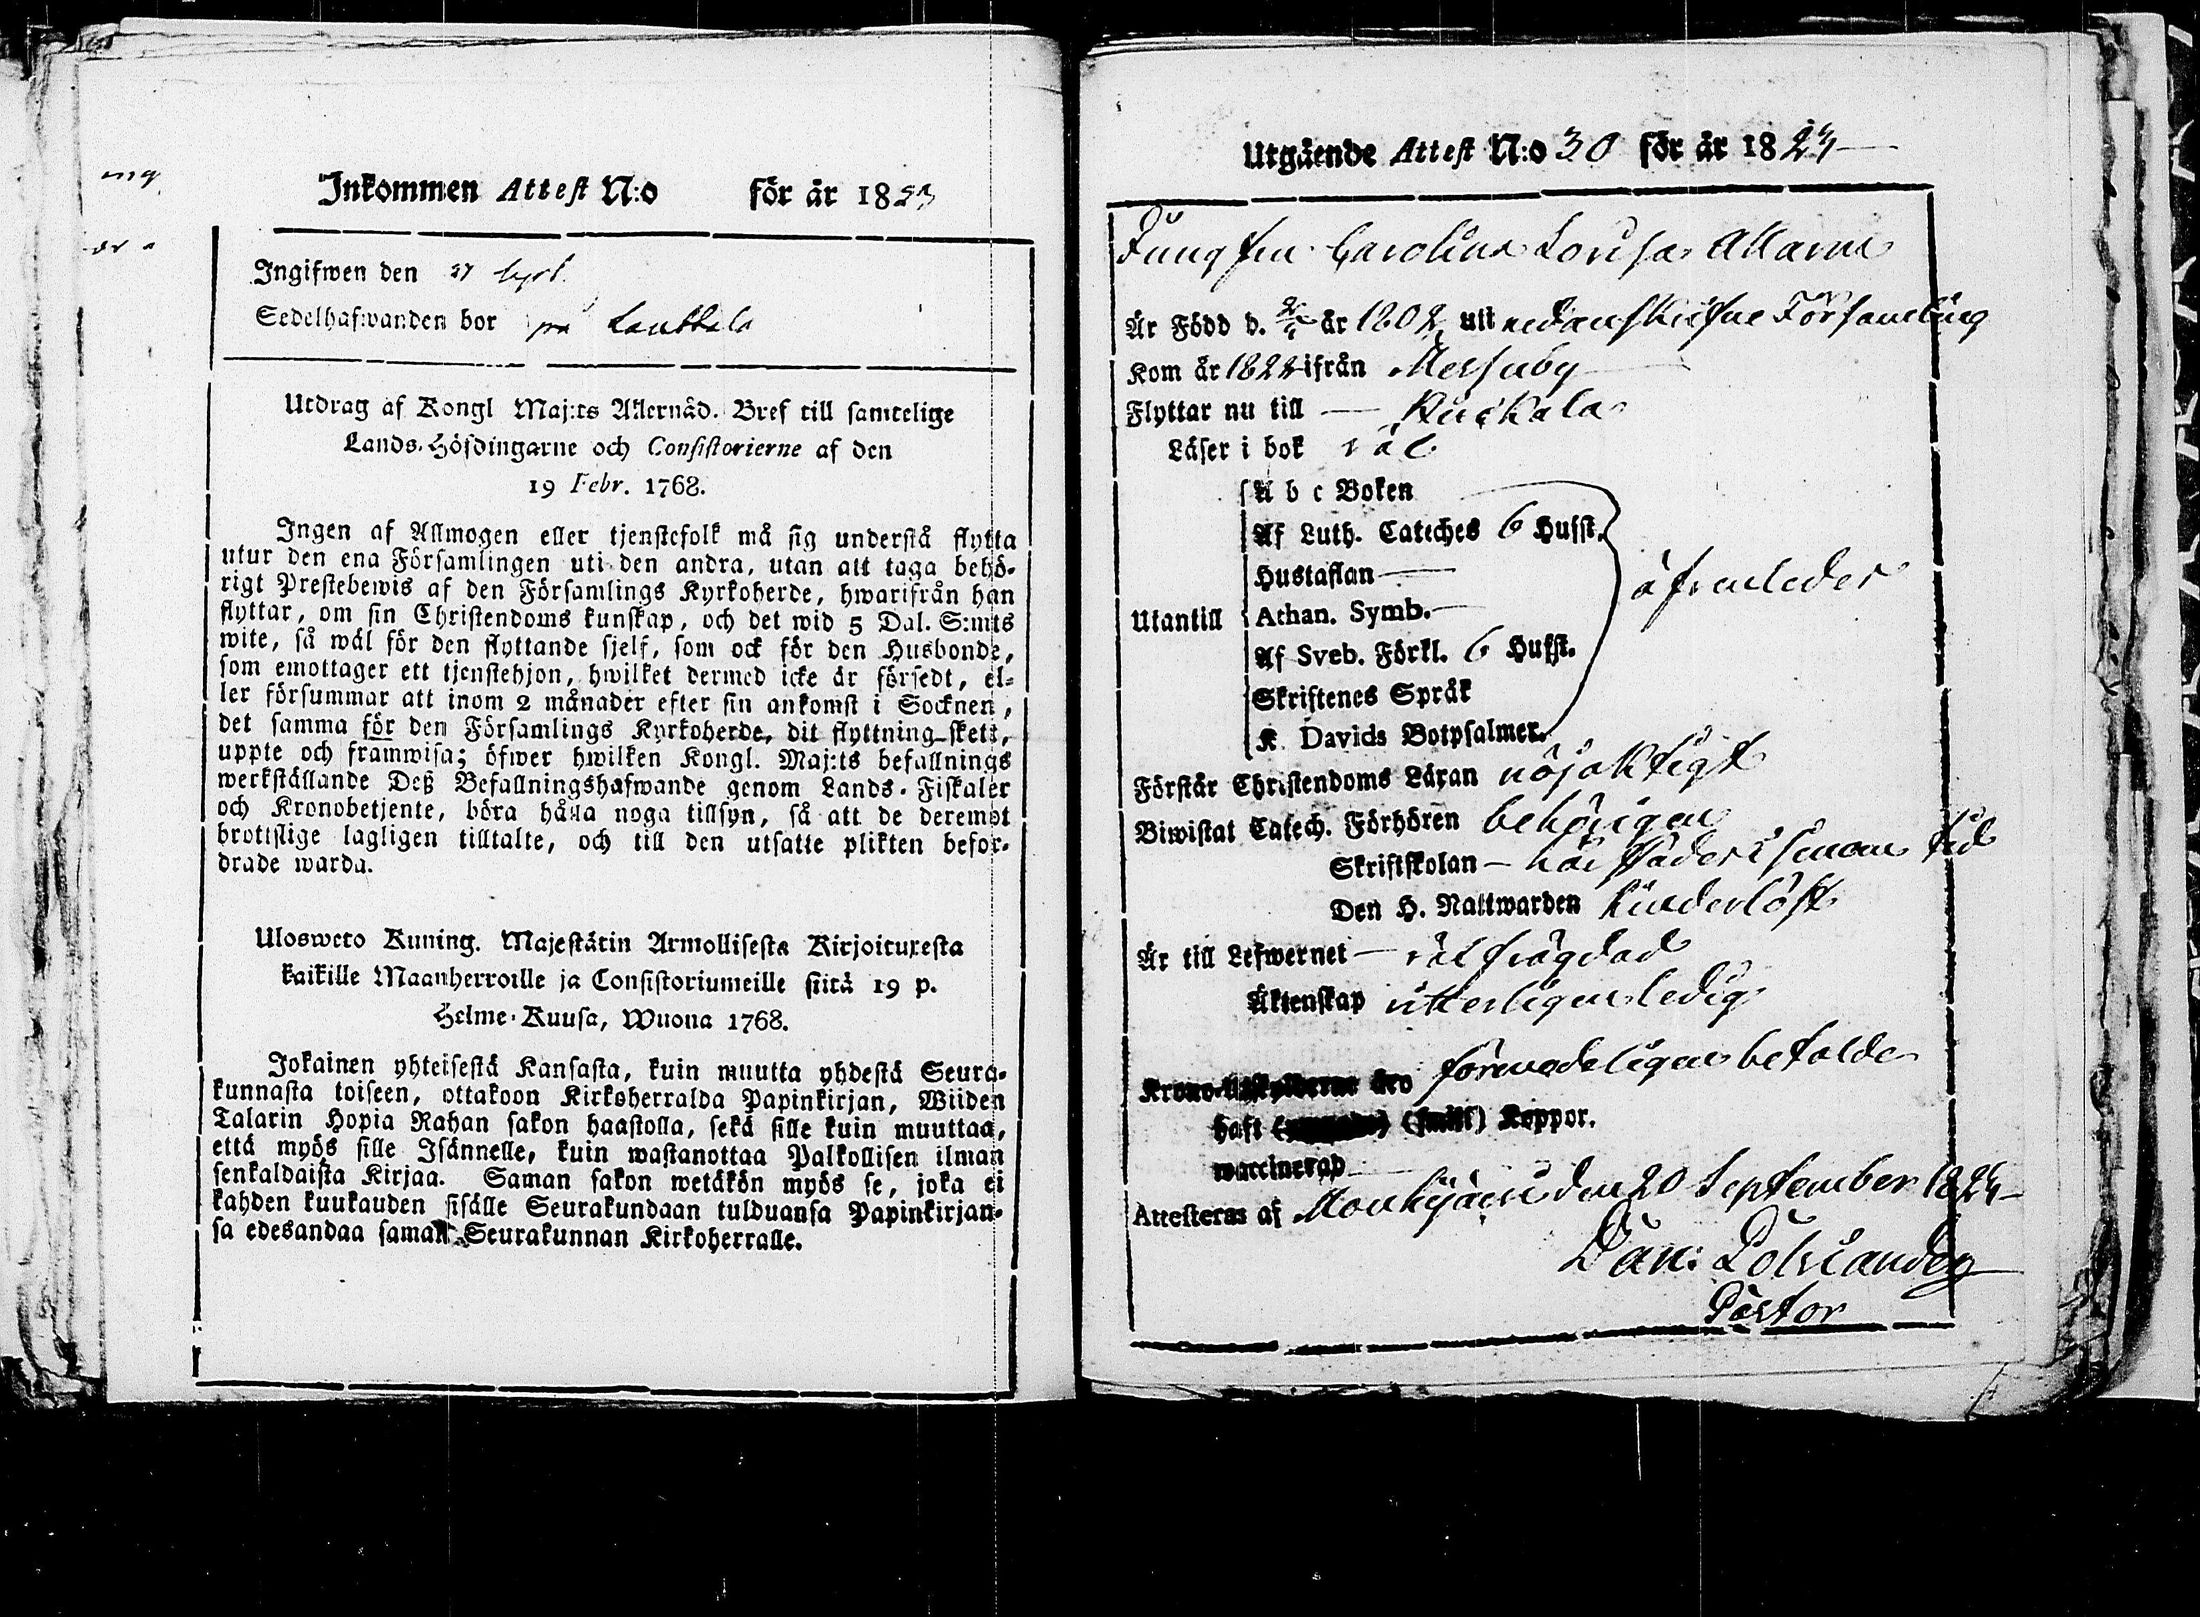 Inkommen Attest N:o för år 1823
Ingifwen den 27 Sept.
Sedelhafwanden bor på Lauttala
Utdrag af Kongl Maj:ts Allernåd. Bref till samtelige
Lands-Höfdingarne och Consistorierne af den
19 Febr. 1768.
Ingen af Allmogen eller tjenstefolk må sig understå flytta
utur den ena Församlingen uti den andra, utan att taga behö-
rigt Prestebewis af den Församlings Kyrkoherde, hwarifrån han
flyttar, om sin Christendoms kunskap, och det wid 5 Dal. S:mts
wite, så wäl för den flyttande sjelf, som ock för den Husbonde,
som emottager ett tjenstehjon, hwilket dermed icke är försedt, el-
ler försummar att inom 2 månader efter sin ankomst i Socknen,
det samma för den Församlings Kyrkoherde, dit flyttning skett,
uppte och framwisa; öfwer hwilken Kongl. Maj:ts befallnings
werkställande Deß Befallningshafwande genom Lands-Fiskaler
och Kronobetjente, böra hålla noga tillsyn, så att de deremot
brottslige lagligen tilltalte, och till den utsatte plikten befor-
drade warda.
Ulosweto Kuning. Majestätin Armollisesta Kirjoituxesta
kaikille Maanherroille ja Consistoriumeille siitä 19 p.
Helme-Kuusa, Wuona 1768.
Jokainen yhteisestä Kansasta, kuin muutta yhdestä Seura-
kunnasta toiseen, ottakoon Kirkoherralda Papinkirjan, Wiiden
Talarin Hopia Rahan sakon haastolla, sekä sille kuin muuttaa,
että myös sille Isännelle, kuin wastanottaa Palkollisen ilman
senkaldaista Kirjaa. Saman sakon wetäkön myös se, joka ei
kahden kuukauden sisälle Seurakundaan tulduansa Papinkirjan-
sa edesandaa saman Seurakunnan Kirkoherralle.
Utgående Attest N:o 30 för år 1824
Jungfru Carolina Lovisa Allarm
Är Född d. år 1802 uti nedanskrifne Församling
Kom år 1822 ifrån Mersuby
Flyttar nu till Kuckala
Läser i bok väl
A b c Boken
Af Luth. Cateches 6 Hufst.
Hustaflan
Utantill Athan. Symb.
Af Sveb. Förkl. 6 Hufst.
Skriftenes Språk
K Davids Botpsalmer.
Förstår Christendoms Läran nöjaktigt
Biwistat Catech. Förhören behörigen
Skriftskolan i sinom tid
Den H. Nattwarden
Är till Lefwernet väl frägdad
Äktenskap ytterligen ledig
Krono-Utskylderne äro förmodeligen betalde
haft Koppor.
waccinerad
Attesteras af den 20 September 1824
Dan: Polviander
Pastor